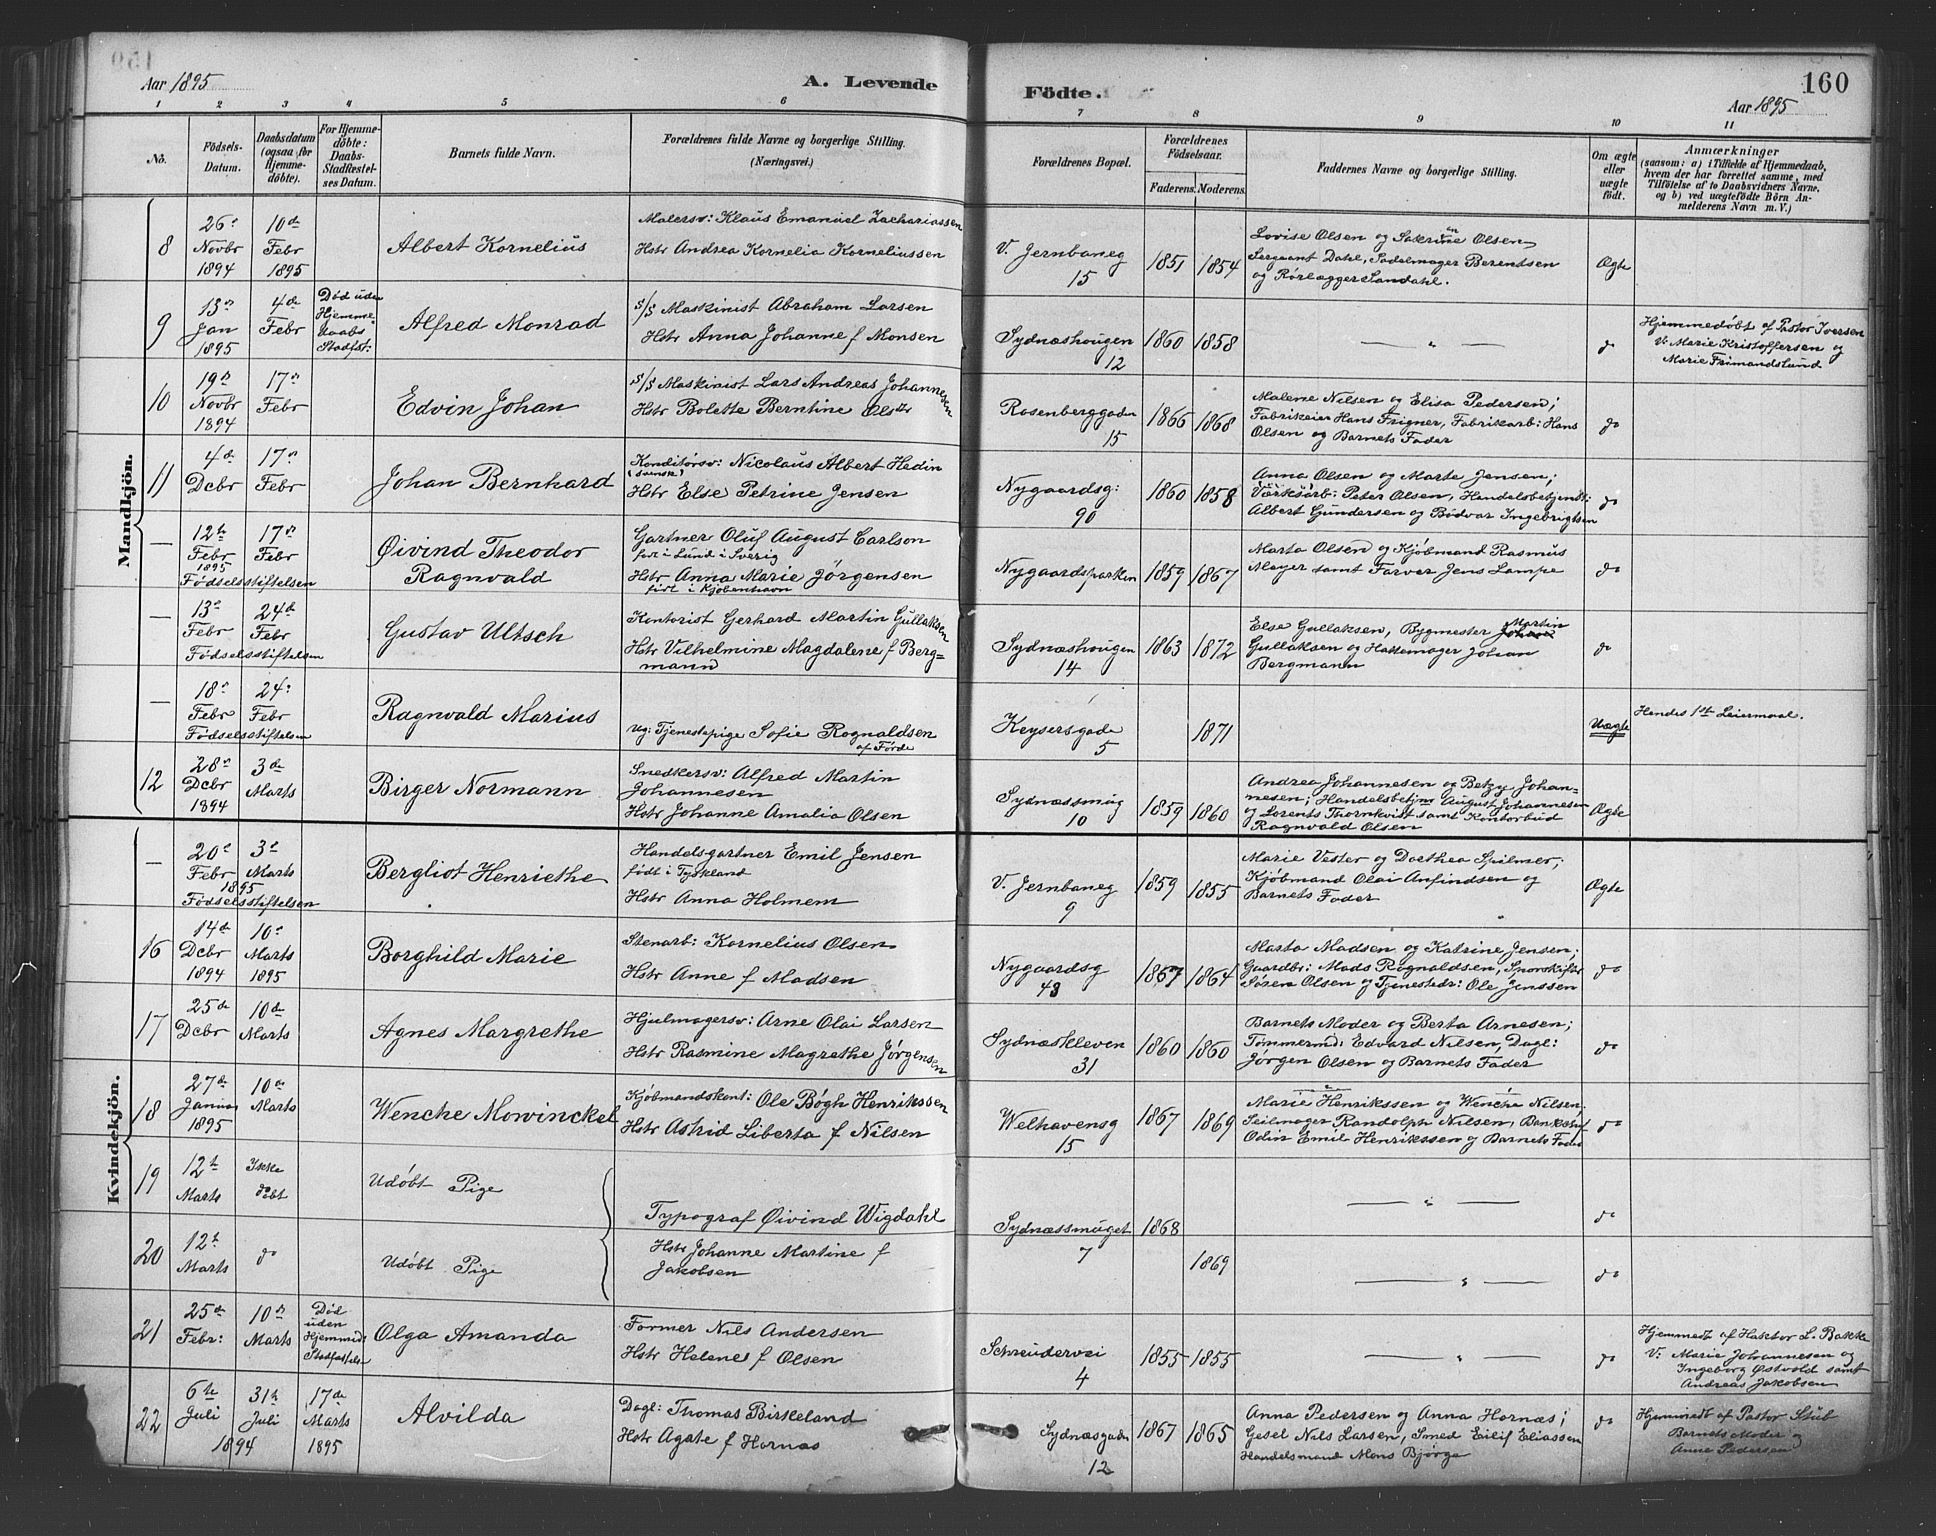 Aar 1895
A. Levende
Födte.
160
Aar 1895
1 2 3 4 5 6 7 8 9 10 11
No.
Födsels-
Datum.
Daabsdatum
(ogsaa for
Hjemme-
døbte).
For Hjemme-
døbte:
Daabs-
Stadfæstel-
ses Datum.
Barnets fulde Navn.
Forældrenes fulde Navne og borgerlige Stilling.
(Næringsvei.)
Forældrenes Bopæl.
Forældrenes
Födselsaar.
Faderens. Moderens.
Faddernes Navne og borgerlige Stilling.
Om ægte
eller
uægte
født.
Anmærkninger
(saasom: a) i Tilfælde af Hjemmedaab,
hvem der har forrettet samme, med
Tilføielse af to Daabsvidners Navne,
og b) ved uægtefödte Börn An-
melderens Navn m. V.)
Mandkjön.
8
26de
Novbr
1894
10de
Febr
1895
Albert Kornelius
Malersv: Klaus Emanuel Zachariassen
Hstr Andrea Kornelia Korneliussen
V. Jernbaneg
15
1851 1854
Lovise Olsen og Sakrine Olsen
Sergeant Dahl, Sadelmager Berentsen
og Rørlægger Sandahl.
Ægte
9
13de
Jan
1895
4de
Febr
Død uden
Hjemme-
daabs
Stadfst:
Alfred Monrad
s/s Maskinist Abraham Larsen
Hstr Anna Johanne f Monsen
Sydnæshougen
12
1860 1858
— " —
do
Hjemmedøbt af Pastor Iversen
V: Marie Kristoffersen og
Marie Frimandslund
10
19de
Novbr
1894
17de
Febr
Edvin Johan
s/s Maskinist Lars Andreas Johannesen
Hstr Bolette Berntine Olsdtr
Rosenberggade
15
1866 1868
Malene Nilsen og Elisa Pedersen;
Fabrikeier Hans Frigner, Fabrikarb: Hans
Olsen og Barnets Fader
do
11
4de
Dcbr
17de
Febr
Johan Bernhard
Konditorsv: Nicolaus Albert Hedin
(svensk)
Hstr Else Petrine Jensen
Nygaardsg:
90
1860 1858
Anna Olsen og Marte Jensen;
Værksarb: Peter Olsen, Handelsbetjendt:
Albert Gundersen og Bødvar Ingebrigtsen
do
—
12te
Febr
1895
Födselsstiftelsen
17de
Febr
Øivind Theodor
Ragnvald
Gartner Oluf August Carlson
født i Lund i Sverig
Hstr Anna Marie Jørgensen
født i Kjøbenhavn
Nygaardsparken
1859 1867
Marta Olsen og Kjøbmand Rasmus
Meyer samt Farver Jens Lampe
do
—
13de
Febr
Födselsstiftelsen
24de
Febr
Gustav Ultsch
Kontorist Gerhard Martin Gullaksen
Hstr Vilhelmine Magdalene f Berg-
mann
Sydnæshougen
14
1863 1872
Else Gullaksen, Bygmester Johan Martin
Gullaksen og Hattemager Johan
Bergmann
do
—
18de
Febr
Födselsstiftelsen
24de
Febr
Ragnvald Marius
Ug: Tjenestepige Sofie Rognaldsen
af Førde
Keysersgade
5
1871
Uægte
Hendes 1ste Leiermaal.
12
28de
Dcbr
1894
3de
Marts
Birger Normann
Snedkersv: Alfred Martin
Johannesen
Hstr Johanne Amalia Olsen
Sydnæssmug
10
1859 1860
Andrea Johannesen og Betzy Johan-
nesen; Handelsbetjm August Johannesen
og Lorents Thornkvist samt Kontorbud
Ragnvald Olsen
Ægte
Kvindekjön.
—
20de
Febr
1895
Födselsstiftelsen
3de
Marts
Bergliot Henriethe
Handelsgartner Emil Jensen
født i Tyskland
Hstr Anna Holmem
V. Jernbaneg
9
1859 1855
Marie Vester og Dorthea Spilmer;
Kjøbmand Olai Anfindsen og
Barnets Fader
Ægte
16
14de
Dcbr
1894
10de
Marts
1895
Borghild Marie
Stenarb: Kornelius Olsen
Hstr Anne f Madsen
Nygaardsg
43
1867 1864
Marta Madsen og Katrine Jensen;
Gaardbr: Mads Rognaldsen, Sporskifter
Søren Olsen og Tjenestedr: Ole Jenssen
do
17
25de
Dcbr
10de
Marts
Agnes Margrethe
Hjulmagersv: Arne Olai Larsen
Hstr Rasmine Magrethe Jørgensen
Sydnæskleven
31
1860 1860
Barnets Moder og Berta Arnesen;
Tømmermd: Edvard Nilsen, Dagl:
Jørgen Olsen og Barnets Fader
do
18
27de
Januar
1895
10de
Marts
Wenche Mowinckel
Kjøbmandskont: Ole Bøgh Henrikssen
Hstr Astrid Liberta f Nilsen
Welhavensg
15
1867 1869
Marie Henrikssen og Wenche Nilsen;
Seilmager Randolph Nilsen,
Odin Emil Henrikssen og Barnets Fader
do
19
12te
Marts
Ikke
døbt
Udøbt Pige
Typograf Øivind Wigdahl
Sydnæssmuget
7
1868
— " —
do
20
12te
Marts
do
Udøbt Pige
Hstr Johanne Martine f
Jakobsen
1869
— " —
do
21
25de
Febr:
10de
Marts
Død
uden
Hjemmed:
Olga Amanda
Former Nils Andersen
Hstr Helene f Olsen
Schreudervei
4
1855 1855
— " —
do
Hjemmedt af Haktor L. Bakke
V: Marie Johannesen og
Ingeborg Østvold samt
Andreas Jakobsen
22
6te
Juli
1894
31te
Juli
17de
Marts
1895
Alvilda
Dagl: Thomas Birkeland
Hstr Agate f Hornæs
Sydnæsgaden
12
1867 1865
Anna Pedersen og Anna Hornæs;
Gesel Nils Larsen, Smed Eilif Eliassen
Handelsmand Mons Bjørge
do
Hjemmedt af Pastor Stub
Barnets Moder og
Anne Pedersen